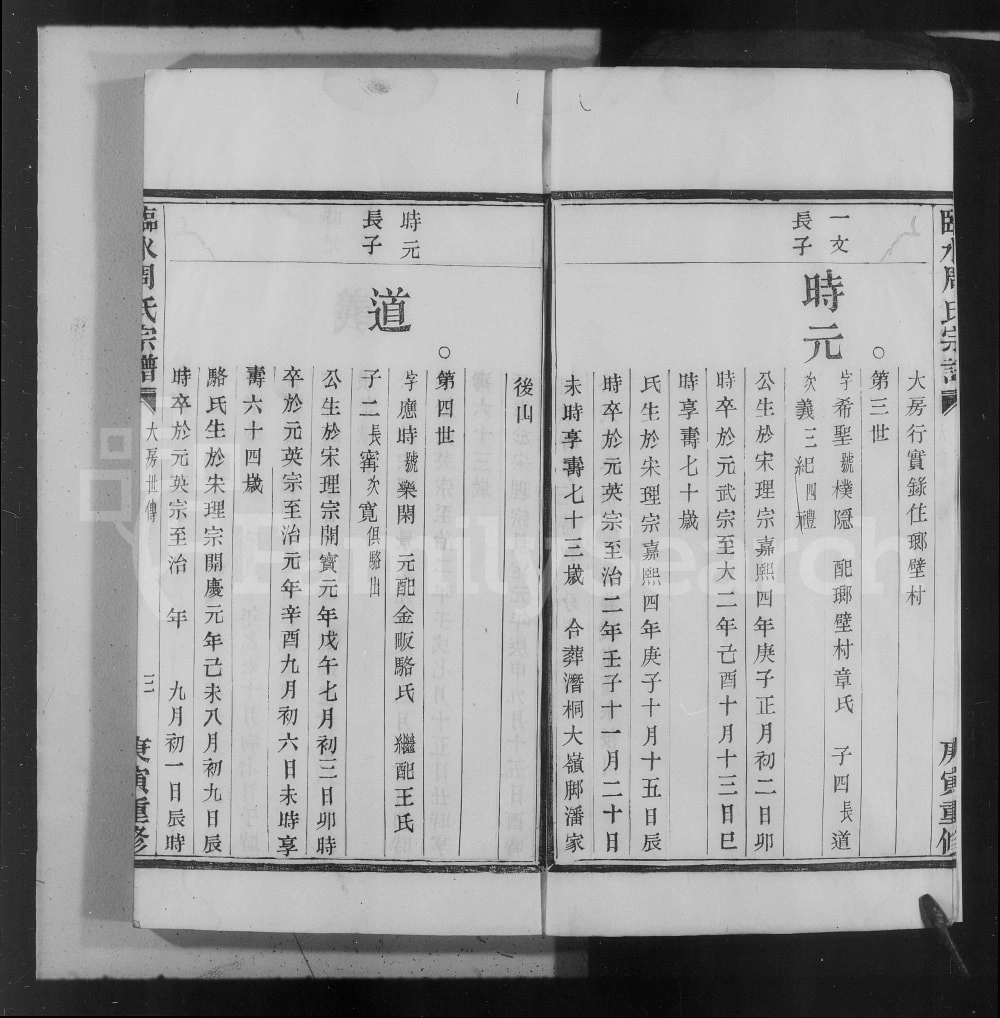 臨水周氏宗譜
庚寅重修
大房行實錄住瑯壁村
○第三世
一文
長子
時元
字希聖號樸隱 配瑯壁村章氏 子四長道
次義三紀四禮
公生於宋理宗嘉熙四年庚子正月初二日卯
時卒於元武宗至大二年己酉十月十三日巳
時享壽七十歲
氏生於宋理宗嘉熙四年庚子十月十五日辰
時卒於元英宗至治二年壬子十一月二十日
未時享壽七十三歲合葬潛桐大嶺脚潘家
後山
○第四世
時元
長子
道
字應時號樂閑 元配金畈駱氏 繼配王氏
子二長寗次寬俱駱出
公生於宋理宗開寶元年戊午七月初三日卯時
卒於元英宗至治元年辛酉九月初六日未時享
壽六十四歲
駱氏生於宋理宗開慶元年己未八月初九日辰
時卒於元英宗至治 年 九月初一日辰時
臨水周氏宗譜
大房世傳
三
庚寅重修
FamilySearch